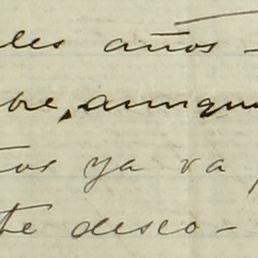 les años -
bre, aunque
tos ya va p
te deseo -